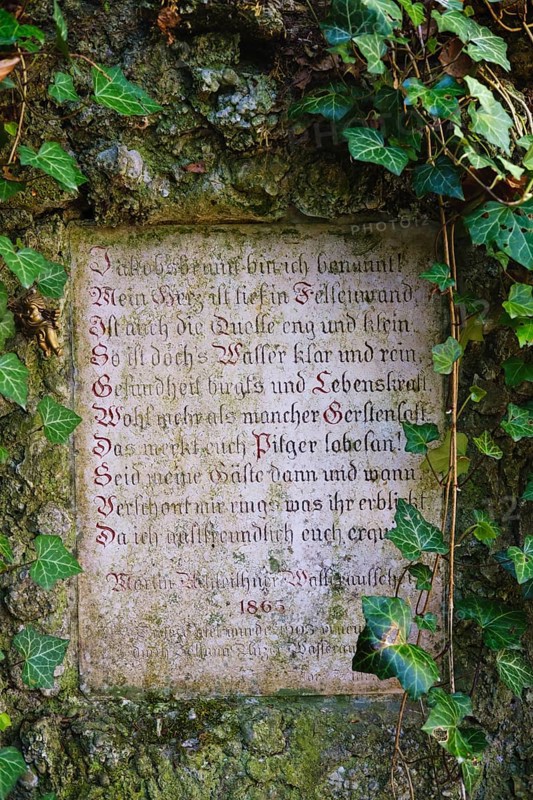 Jakobsbrunn bin ich benannt!
Mein Herz ist tief in Felsenwand,
Ist auch die Quelle eng und klein.
So ist doch's Wasser klar und rein,
Gesundheit birgt's und Lebenskraft,
Wohl mehr als mancher Gerstensaft.
Das merkt euch Pilger lobesan!
Seid meine Gäste dann und wann
Verschont mir rings was ihr erblickt
Da ich gastfreundlich euch
Martin
1865
wurde 1903
durch